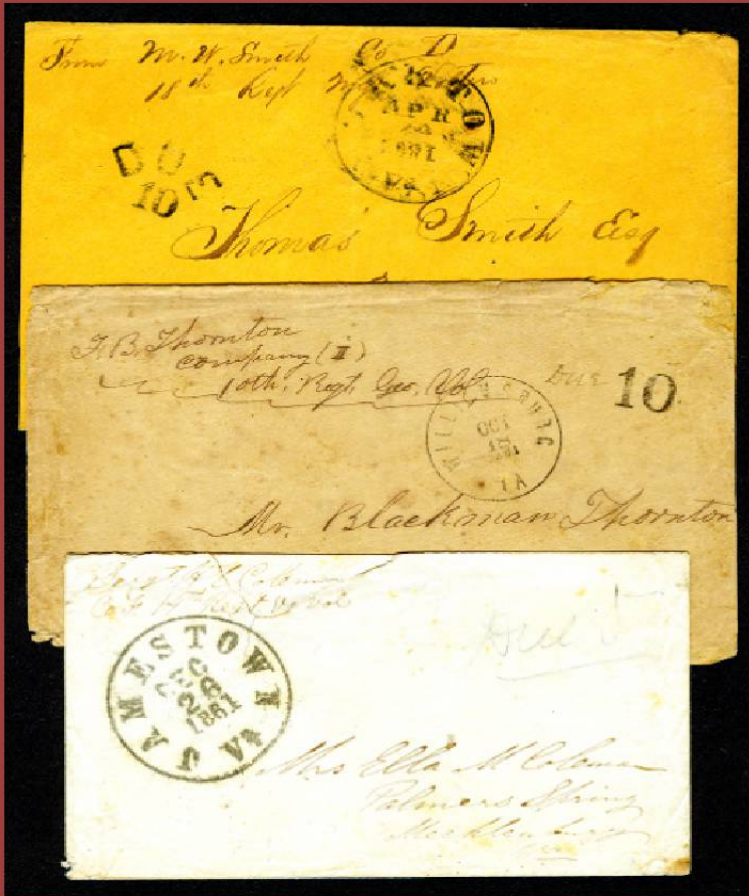 From M. W. Smith Co D
18th Regt
TOWN
APR
1861
VA
DUE
10
Thomas Smith Esq
T. B. Thornton
Company (I)
10th. Regt. Geo. Vol
WILLIAMSBURG
OCT
VA
Due 10
Mr. Blackman Thornton
Coleman
JAMESTOWN VA
DEC
26
1861
Due 5
Mrs Ella M Coleman
Palmers Spring
Mecklenburg